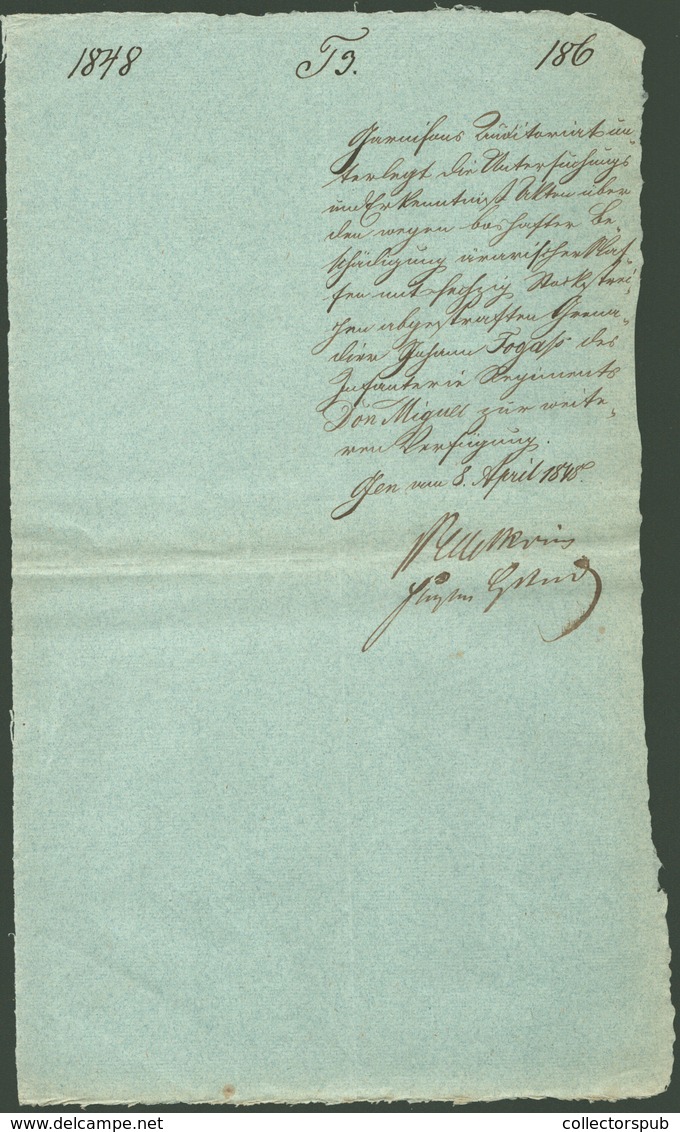 1848 T3. 186
Garnisons Auditoriat un-
terlegt die Untersuchungs
und Erkenntniß Akten über
den wegen boshafter Be
schädigung ärarischer Waf-
fen mit sechzig Stockstrei-
chen abgestraften Grena-
dier Johann Togaß des
Infanterie Regiments
Don Miguel zur weite-
ren Verfügung.
vom 8. April 1848.
delcampe.net
collectorspub